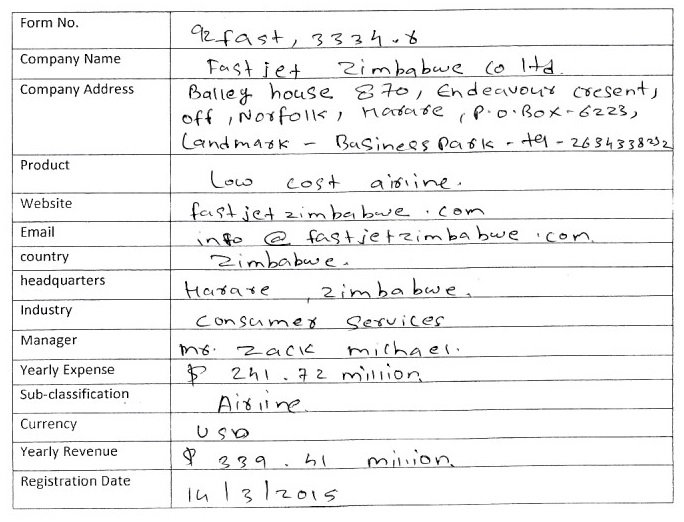 Form No. 92fast, 3334.8
Company Name Fastjet Zimbabwe Co ltd.
Company Address Balley house 870, Endeavour cresent,
off, Norfolk, Harare, P.O.Box-6223,
Landmark - Business Park - tel - 2634338292
Product Low cost airline.
Website fastjetzimbabwe.com
Email info@fastjetzimbabwe.com.
country Zimbabwe.
headquarters Harare, zimbabwe.
Industry Consumer Services
Manager Mr. Zack michael.
Yearly Expense $ 241.72 million
Sub-classification Airline.
Currency USD
Yearly Revenue $ 339.41 million.
Registration Date 14/3/2015